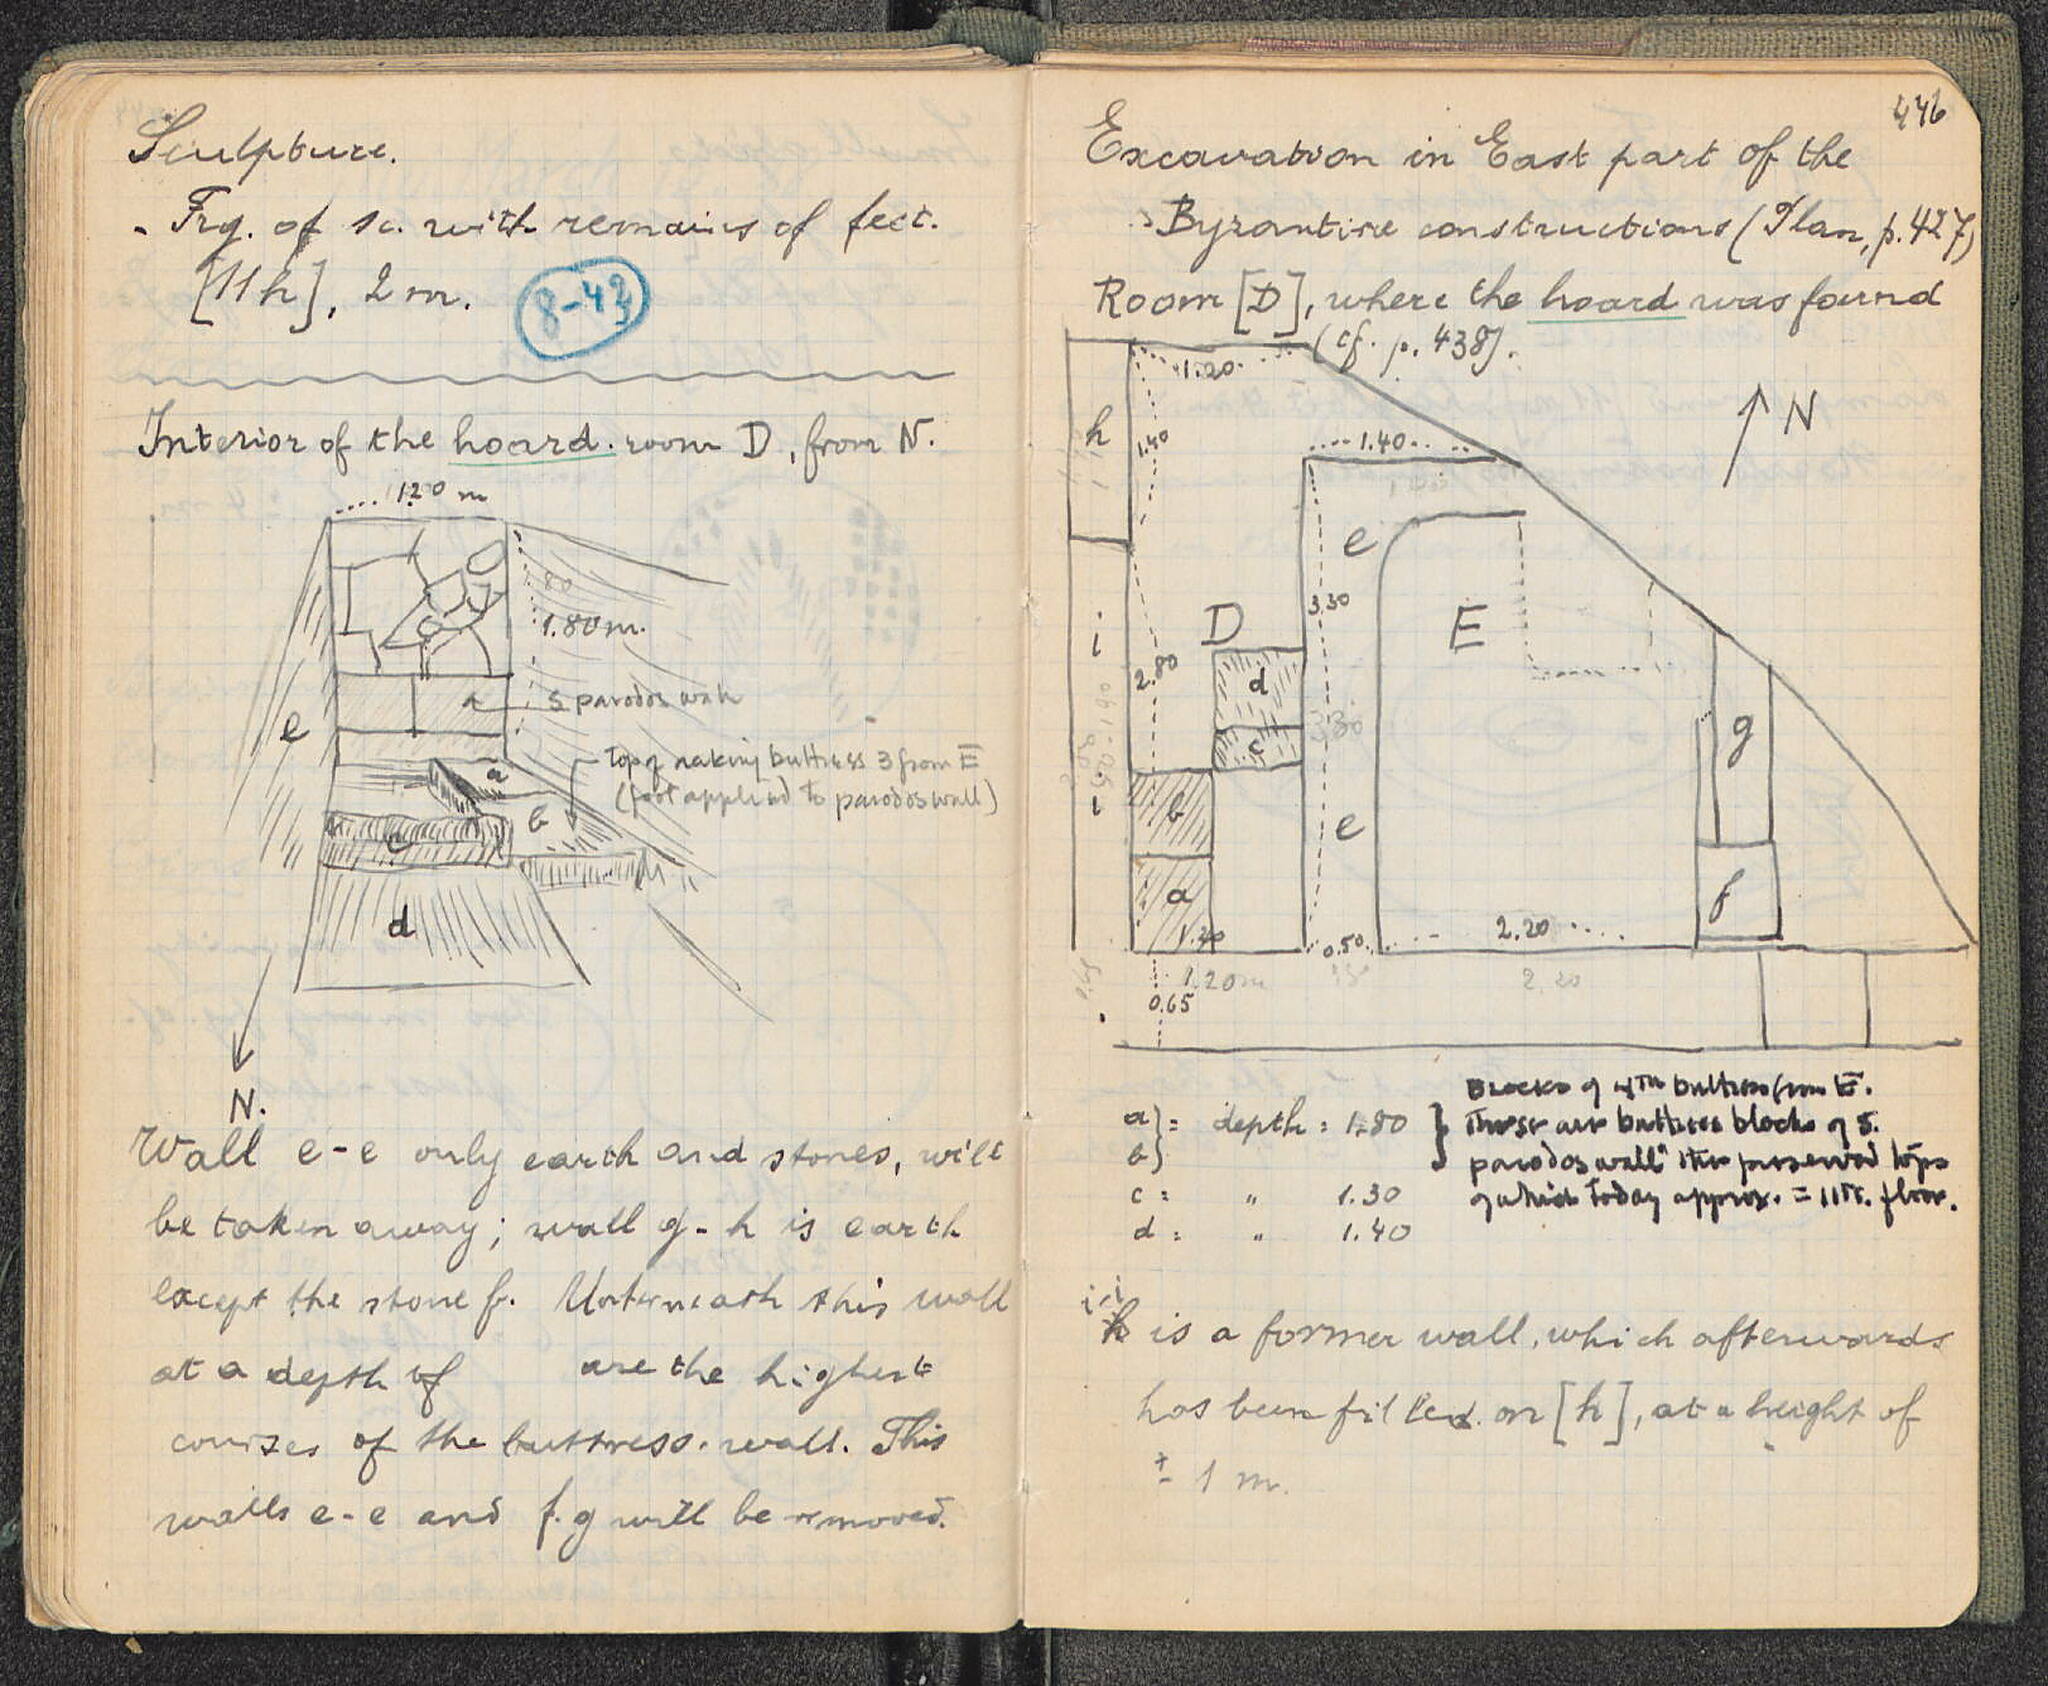 Sculpture.
- Frg. of sc. with remains of feet.
[11h], 2 m.
8-43
Interior of the hoard. room D, from N.
1.20 m
80
1.80 m.
a
S parodos wall
e
top of raking buttress 3 from E
(foot applied to parodos wall)
a
b
c
d
N.
Wall e-e only earth and stones, will
be taken away; wall g-h is earth
except the stone f. Underneath this wall
at a depth of are the highest
courses of the buttress. wall. This
walls e-e and f.g will be removed.
446
Excavation in East part of the
Byzantine constructions (Plan, p. 427)
Room [D], where the hoard was found
(cf. p. 438).
1.20
N
h
1.40
1.40
e
3.30
D
E
i
2.80
d
g
c
3.30
i
b
e
a
f
1.20
0.50
2.20
1.20 m
2.20
0.65
Blocks of 4th buttress from E.
a) = depth = 1.80 } These are buttress blocks of S.
b) parodos wall" the preserved tops
c = " 1.30 of which today approx. = 11 floor.
d = " 1.40
i-i
h is a former wall, which afterwards
has been filled on [h], at a height of
± 1 m.